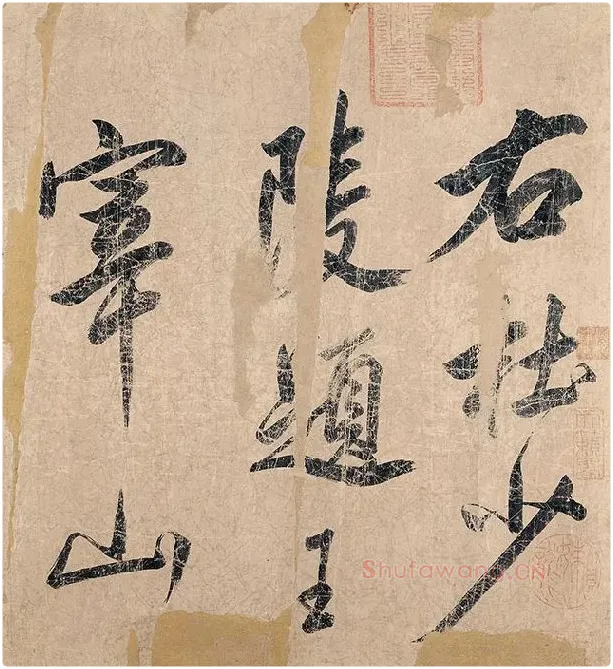 右杜少
陵題王
宰山
Shufawang.CN